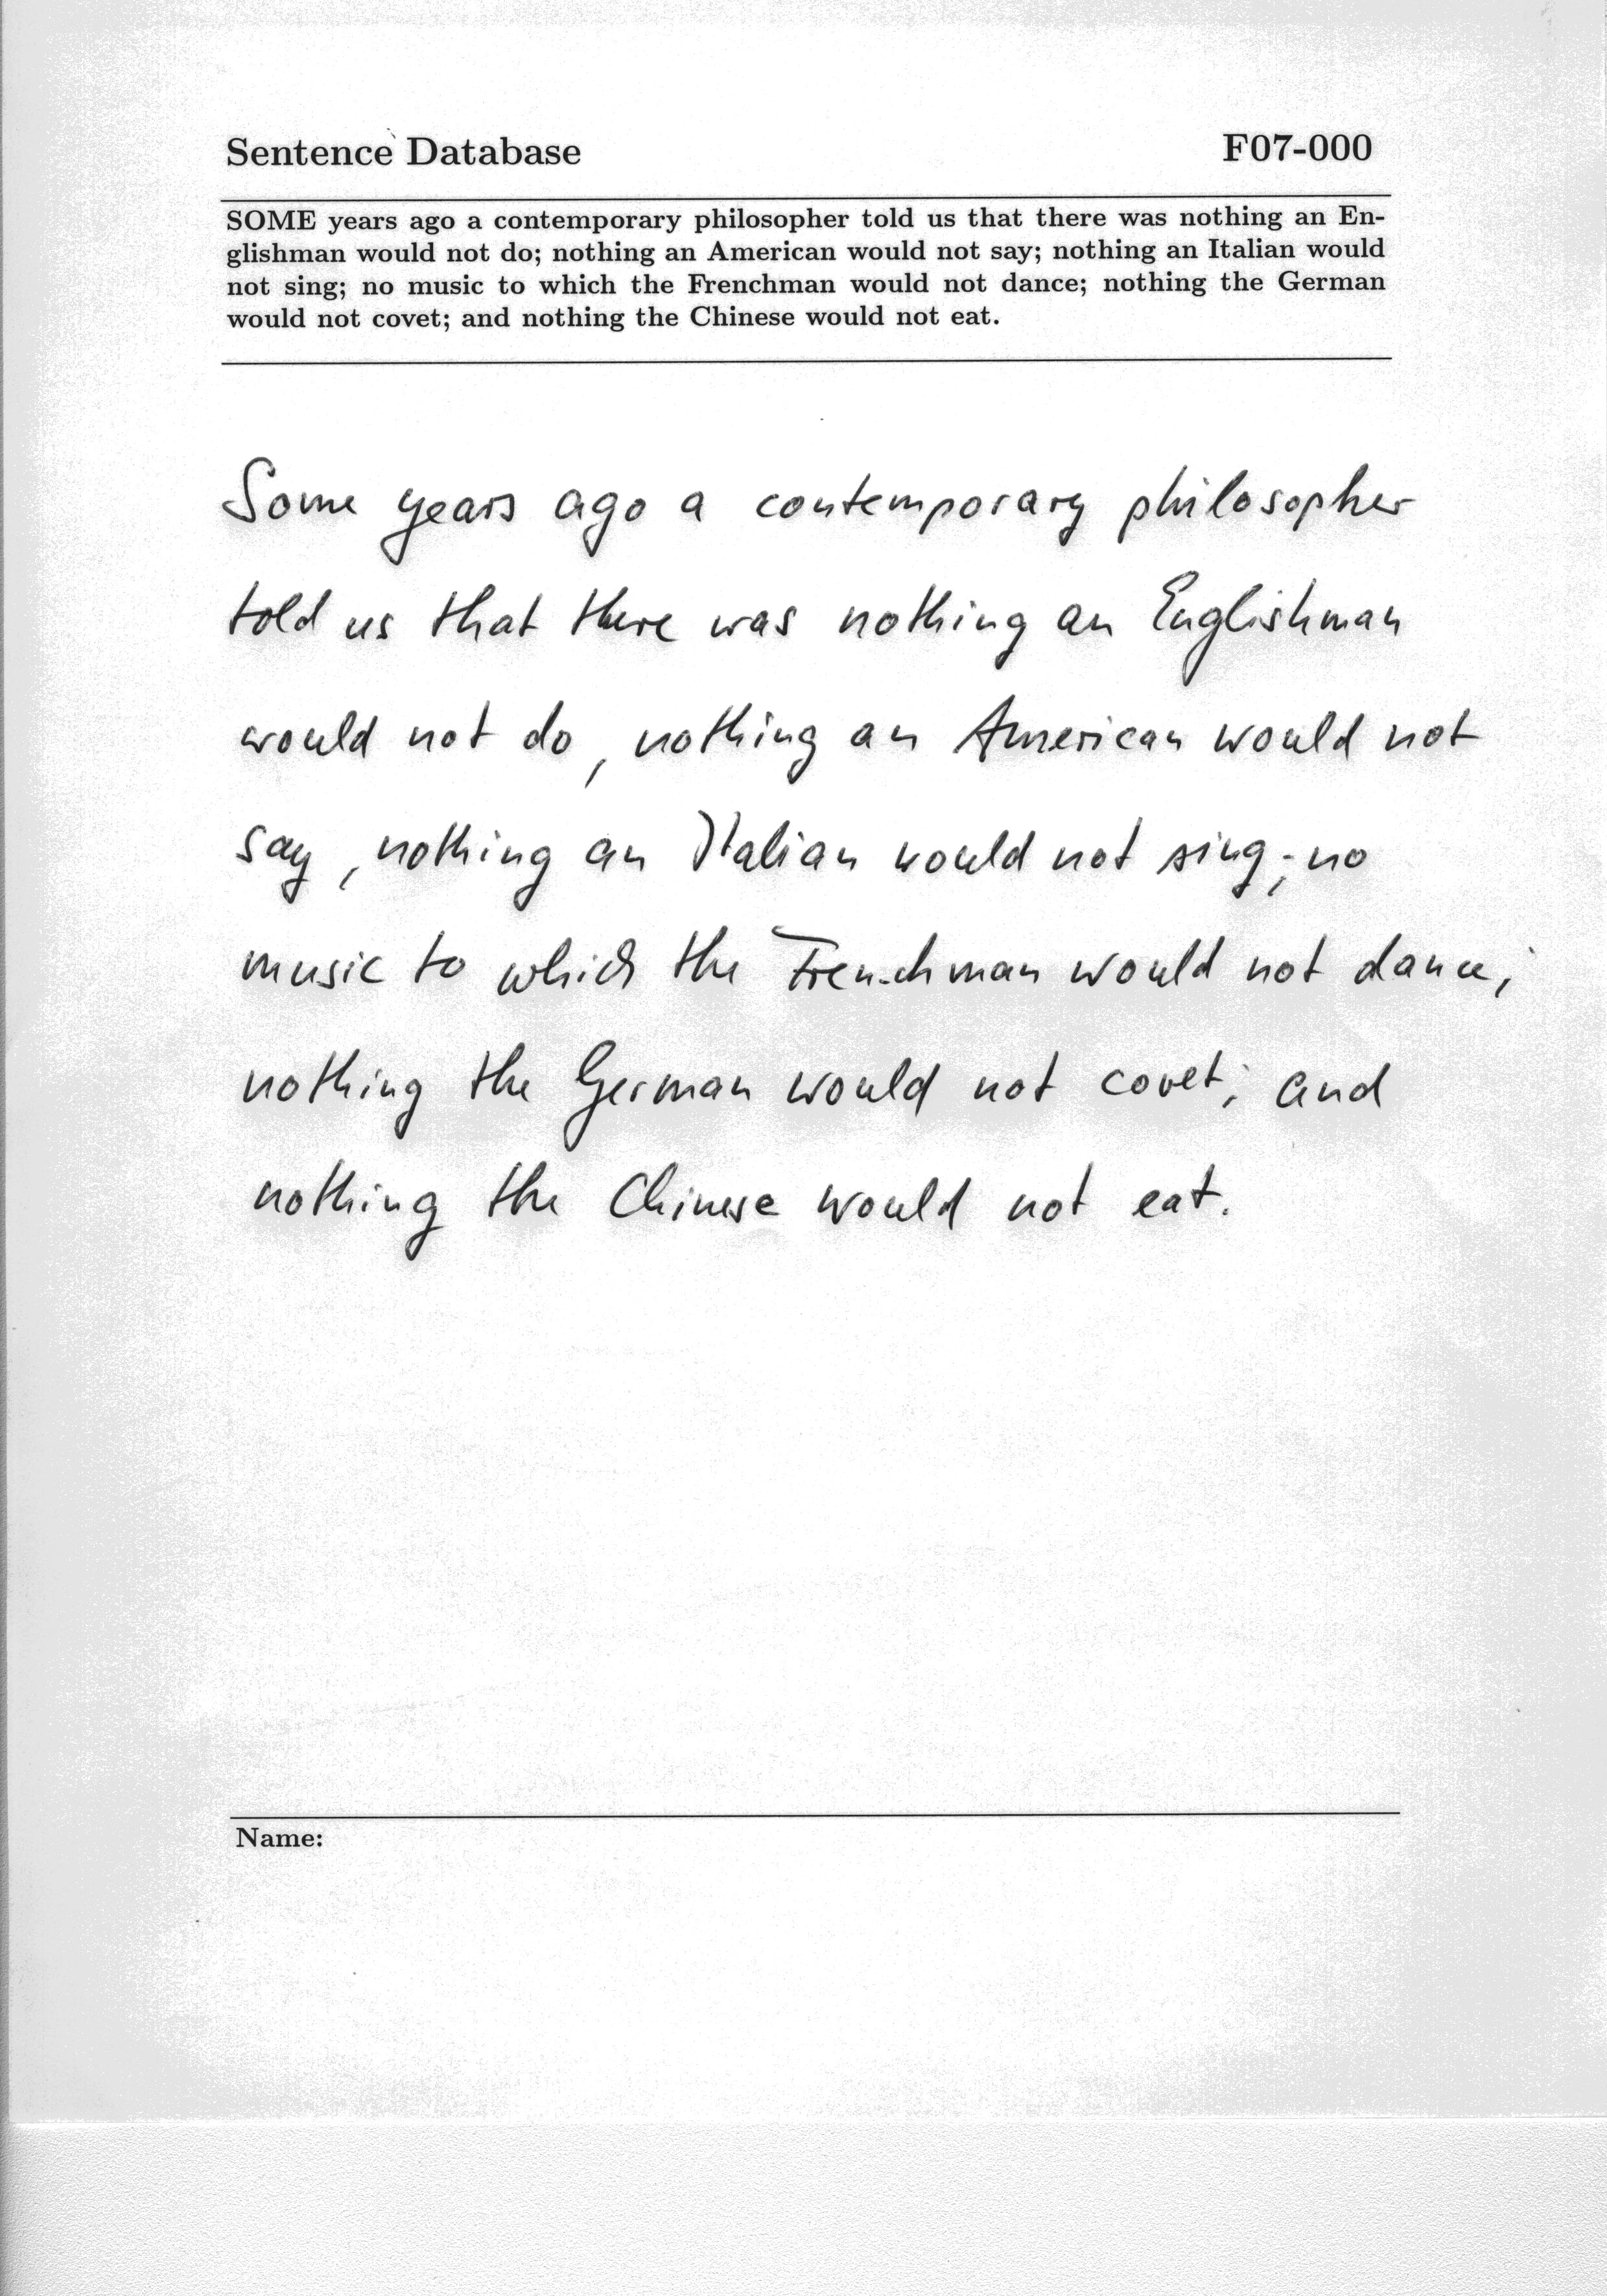 Sentence Database F07-000
SOME years ago a contemporary philosopher told us that there was nothing an En-
glishman would not do; nothing an American would not say; nothing an Italian would
not sing; no music to which the Frenchman would not dance; nothing the German
would not covet; and nothing the Chinese would not eat.
Some years ago a contemporary philosopher
told us that there was nothing an Englishman
would not do, nothing an American would not
say, nothing an Italian would not sing; no
music to which the Frenchman would not dance;
nothing the German would not covet; and
nothing the Chinese would not eat.
Name: